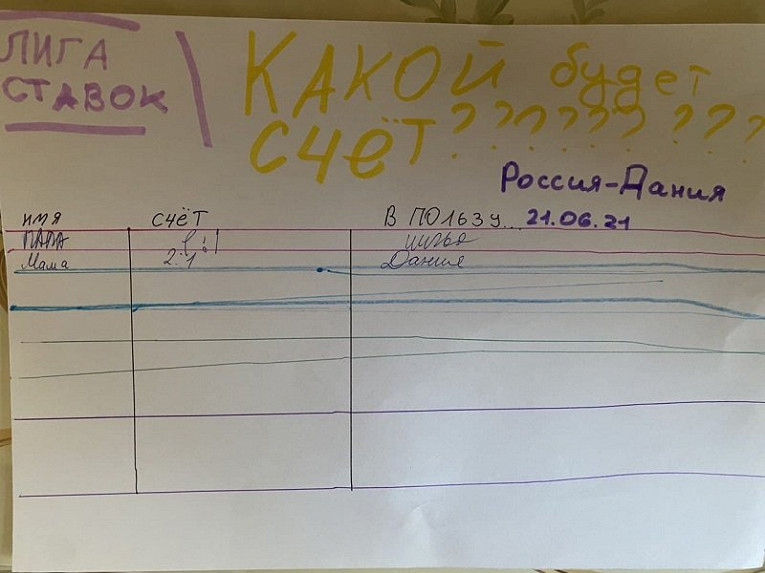 ЛИГА
СТАВОК
КАКОЙ будет
СЧЁТ??????? ???
Россия-Дания
имя СЧЁТ В ПОЛЬЗУ... 21.06.21
ПАПА ничья
Мама 2:1 Дания